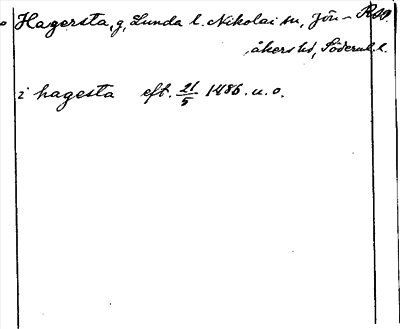 Hagersta, g, Lunda l. Nikolai sn, Jön-
åkers hd, Söderml. l.
i hagesta eft. 21/5 1486. u. o.